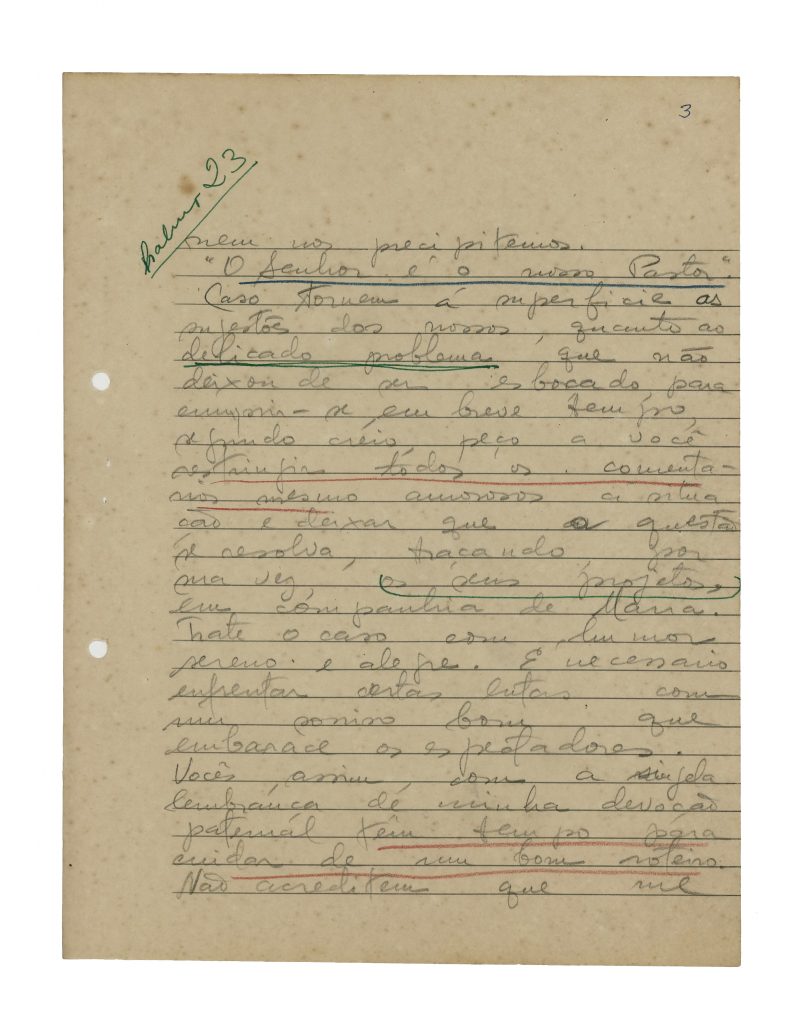 3
Psalmo 23
nem nos precipitemos.
"O Senhor é o nosso Pastor".
Caso tornem á superficie as
sujestões dos nossos, quanto ao
delicado problema que não
deixou de ser esboçado para
cumprir-se em breve tempo,
segundo creio, peço a você
restringir todos os comentá-
rios mesmo amorosos á situa
ção e deixar que a questão
se resolva, traçando, por
sua vez, os seus projetos,
em companhia de Maria.
Trate o caso com humor
sereno e alegre. É necessario
enfrentar certas lutas com
um sorriso bom que
embarace os espectadores.
Vocês assim, com a singela
lembrança de minha devoção
paternal têm tempo para
cuidar de um bom roteiro.
Não acreditem que me